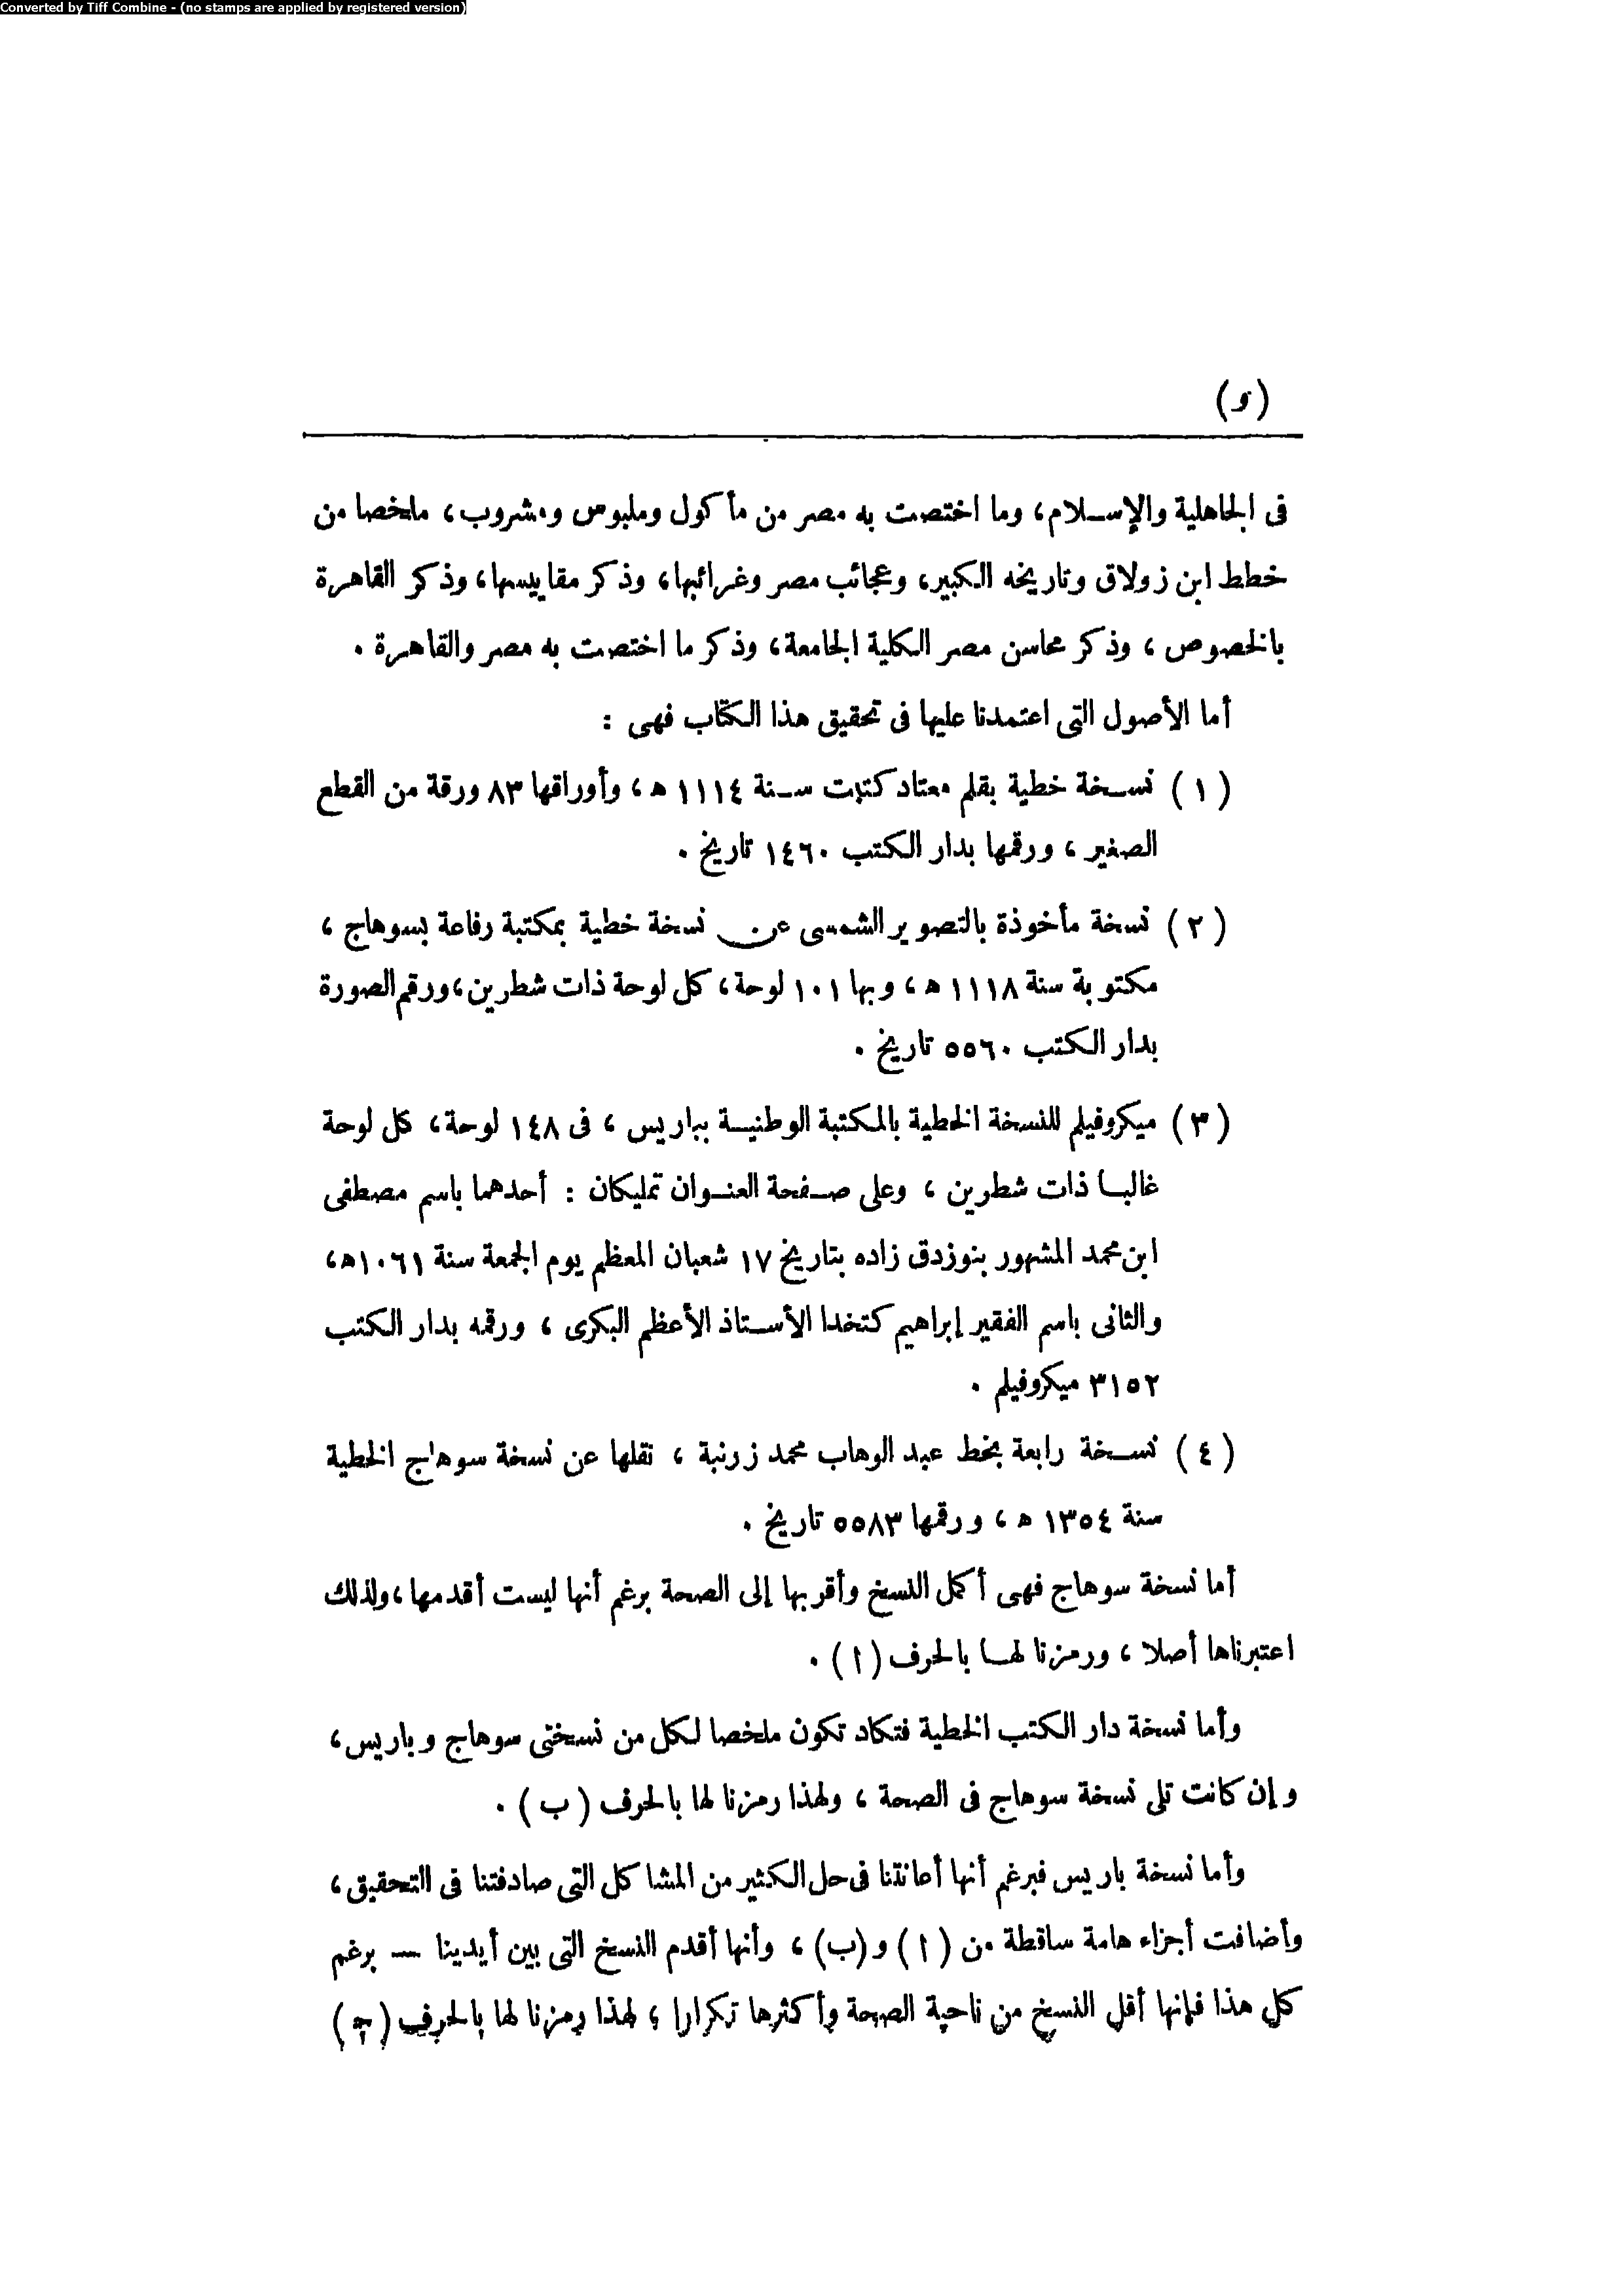 Converted by Tiff Combine - (no stamps are applied by registered version)
(و)
فى الجاهلية والإسلام، وما اختصت به مصر من مأكول وملبوس ومشروب، ملخصا من
خطط ابن زولاق وتاريخه الكبير، وعجائب مصر وغرائبها، وذكر مقاييسها، وذكر القاهرة
بالخصوص، وذكر محاسن مصر الكلية الجامعة، وذكر ما اختصت به مصر والقاهرة .
أما الأصول التى اعتمدنا عليها فى تحقيق هذا الكتاب فهى :
(١) نسخة خطية بقلم معتاد كتبت سنة ١١١٤ ه، وأوراقها ٨٣ ورقة من القطع
الصغير، ورقمها بدار الكتب ١٤٦٠ تاريخ .
(٢) نسخة مأخوذة بالتصوير الشمسى عن نسخة خطية بمكتبة رفاعة بسوهاج،
مكتوبة سنة ١١١٨ ه، وبها ١٠١ لوحة، كل لوحة ذات شطرين، ورقم الصورة
بدار الكتب ٥٥٦٠ تاريخ .
(٣) ميكروفيلم للنسخة الخطية بالمكتبة الوطنية بباريس، فى ١٤٨ لوحة، كل لوحة
غالبا ذات شطرين، وعلى صفحة العنوان تمليكان : أحدهما باسم مصطفى
ابن محمد المشهور بنوزدق زاده بتاريخ ١٧ شعبان المعظم يوم الجمعة سنة ١٠٦١ه،
والثانى باسم الفقير إبراهيم كتخدا الأستاذ الأعظم البكرى، ورقمه بدار الكتب
٣١٥٢ ميكروفيلم .
(٤) نسخة رابعة بخط عبد الوهاب محمد زرنبة، نقلها عن نسخة سوهاج الخطية
سنة ١٣٥٤ ه، ورقمها ٥٥٨٣ تاريخ .
أما نسخة سوهاج فهى أكمل النسخ وأقربها إلى الصحة برغم أنها ليست أقدمها، ولذلك
اعتبرناها أصلا، ورمزنا لها بالحرف (ا) .
وأما نسخة دار الكتب الخطية فتكاد تكون ملخصا لكل من نسختى سوهاج وباريس،
وإن كانت تلى نسخة سوهاج فى الصحة، ولهذا رمزنا لها بالحرف (ب) .
وأما نسخة باريس فبرغم أنها أعانتنا فى حل الكثير من المشاكل التى صادفتنا فى التحقيق،
وأضافت أجزاء هامة ساقطة من (ا) و(ب)، وأنها أقدم النسخ التى بين أيدينا — برغم
كل هذا فإنها أقل النسخ من ناحية الصحة وأكثرها تكرارا، لهذا رمزنا لها بالحرف (ج)